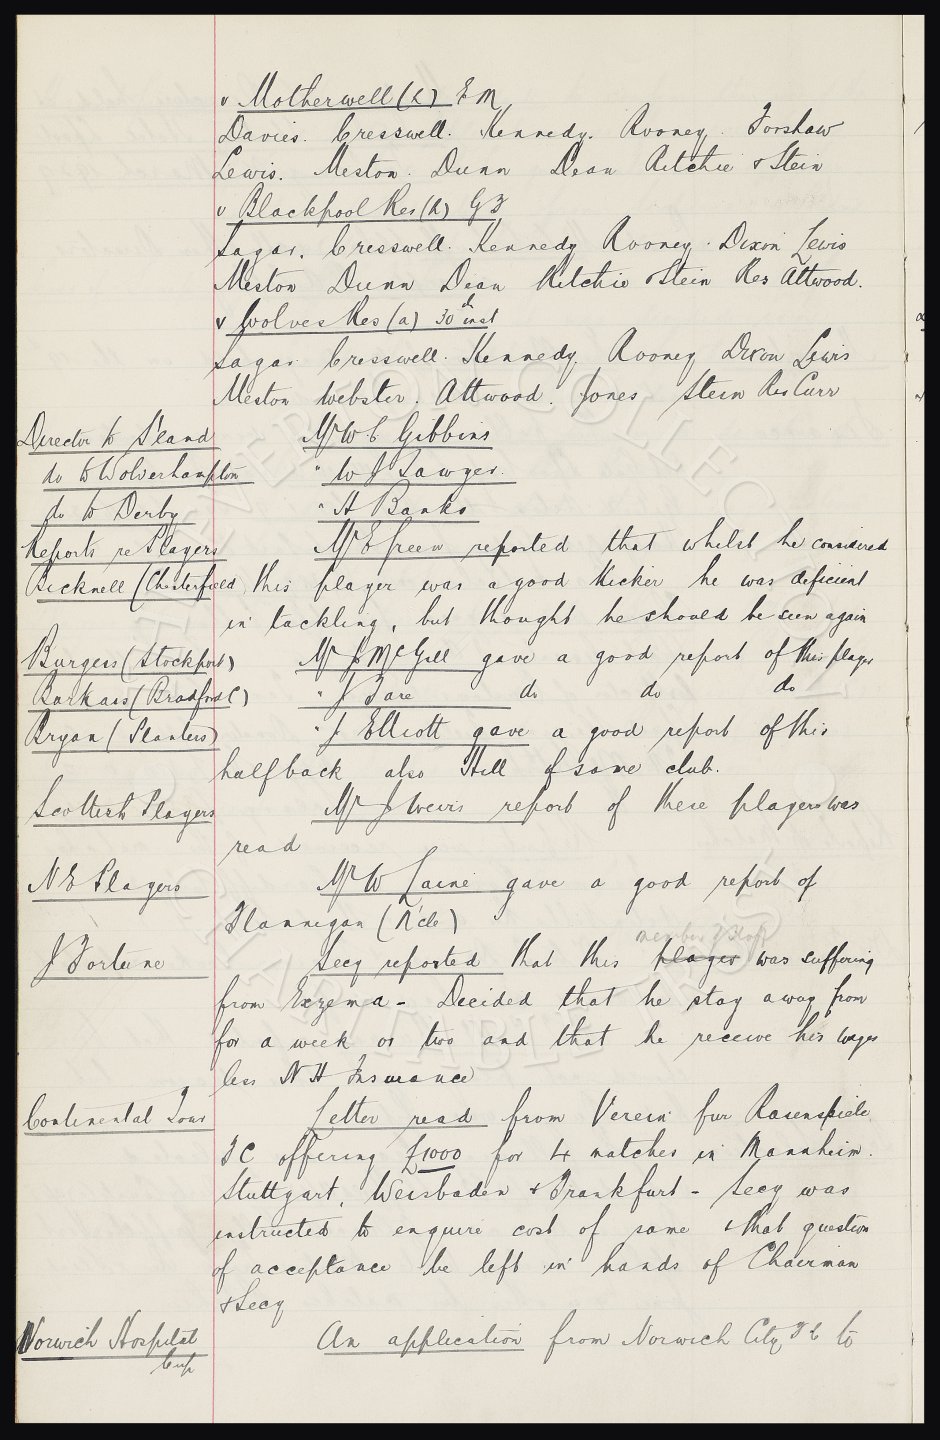 v Motherwell (h) E M
Davies. Cresswell. Kennedy. Rooney. Forshaw
Lewis. Meston. Dunn Dean Ritchie & Stein
v Blackpool Res (h) G J
Sagar. Cresswell. Kennedy Rooney. Dixon Lewis
Meston Dunn Dean Ritchie & Stein Res Attwood.
v Wolves Res (a) 30th inst
Sagar. Cresswell. Kennedy Rooney Dixon Lewis
Meston Webster. Attwood. Jones Stein Res Curr
Director to S'land Mr W C Gibbins
do to Wolverhampton " W J Sawyer.
do to Derby " A Banks
Reports re Players Mr E Green reported that whilst he considered
Bicknell (Chesterfield) this player was a good kicker he was deficient
in tackling, but thought he should be seen again
Burgess (Stockport) Mr J McGill gave a good report of this player
Barkas (Bradford C) " J Fare do do do
Bryan (Planters) " J Elliott gave a good report of this
half back also Hill of same club.
Scottish Players Mr J Weirs report of these players was
read
N E Players Mr W Laine gave a good report of
Flannigan (N'cle)
member of staff
J Fortune Secy reported that this player was suffering
from Exzema - Decided that he stay away from
for a week or two and that he receive his wages
less N H Insurance
Continental Tour Letter read from Verein fur Rasenspiele
F C offering £1000 for 4 matches in Mannheim.
Stuttgart, Weisbaden & Frankfurt - Secy was
instructed to enquire cost of same & that question
of acceptance be left in hands of Chairman
& Secy
Norwich Hospital An application from Norwich City F C to
Cup